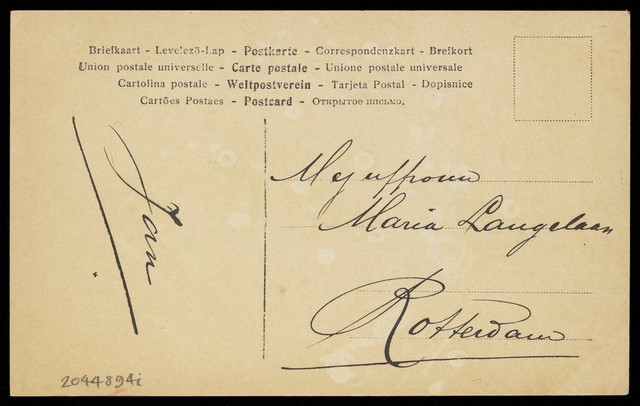 Briefkaart - Levelező-Lap - Postkarte - Correspondenzkart - Brefkort
Union postale universelle - Carte postale - Unione postale universale
Cartolina postale - Weltpostverein - Tarjeta Postal - Dopisnice
Cartões Postaes - Postcard - Открытое письмо.
Jan
Mejuffrouw
Maria Langelaan
Rotterdam
2044894i